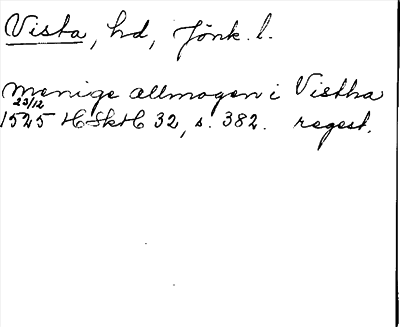 Vista, hd, Jönk. l.
Menige allmogen i Vistha
23/12
1525 HSkH 32, s. 382. regest.